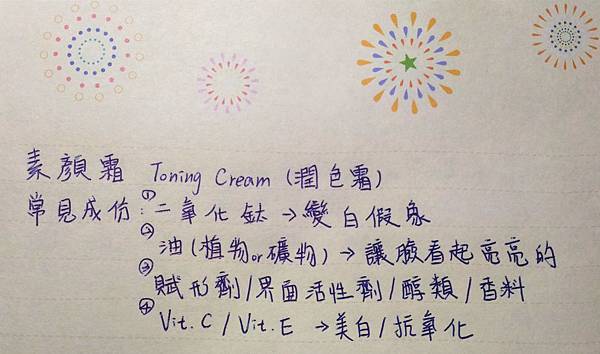 素顏霜 Toning Cream (潤色霜)
常見成份:①二氧化鈦→變白假象
②油(植物or礦物)→讓臉看起亮亮的
③賦形劑/界面活性劑/醇類/香料
④Vit.C/Vit.E→美白/抗氧化